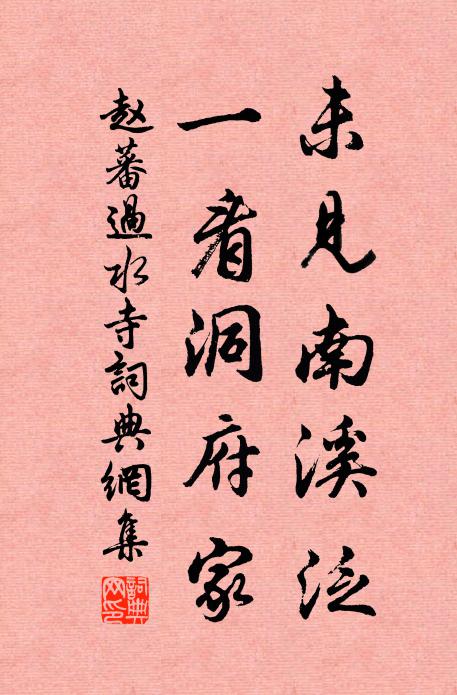 未見南溪泛
一看洞府家
赵蕃過水寺詞典網集
詞典網印